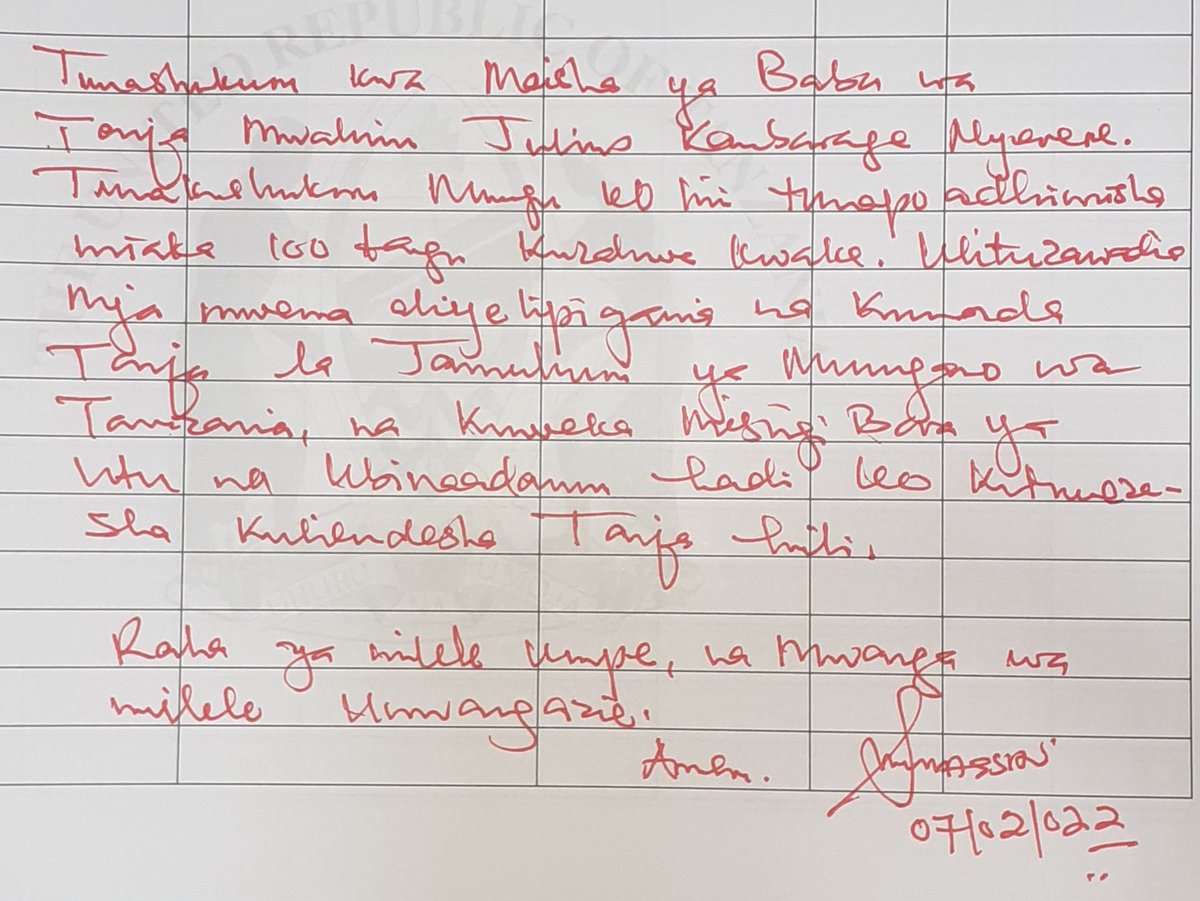 Tunashukuru kwa Maisha ya Baba wa
Taifa Mwalimu Julius Kambarage Nyerere.
Tunakushukuru Mungu leo hii tunapo adhimisha
miaka 100 tangu Kuzaliwa Kwake. Ulituzawadia
Mja mwema aliyelipigania na Kuunda
Taifa la Jamuhuri ya Muungano wa
Tanzania, na Kuweka Misingi Bora ya
Utu na Ubinaadamu hadi leo Kutuweze-
sha Kuliendesha Taifa hili.
Raha ya milele Umpe, na Mwanga wa
milele Umwangazie.
Amen.
07/02/022
UNITED REPUBLIC OF TANZANIA
UHURU NA UMOJA